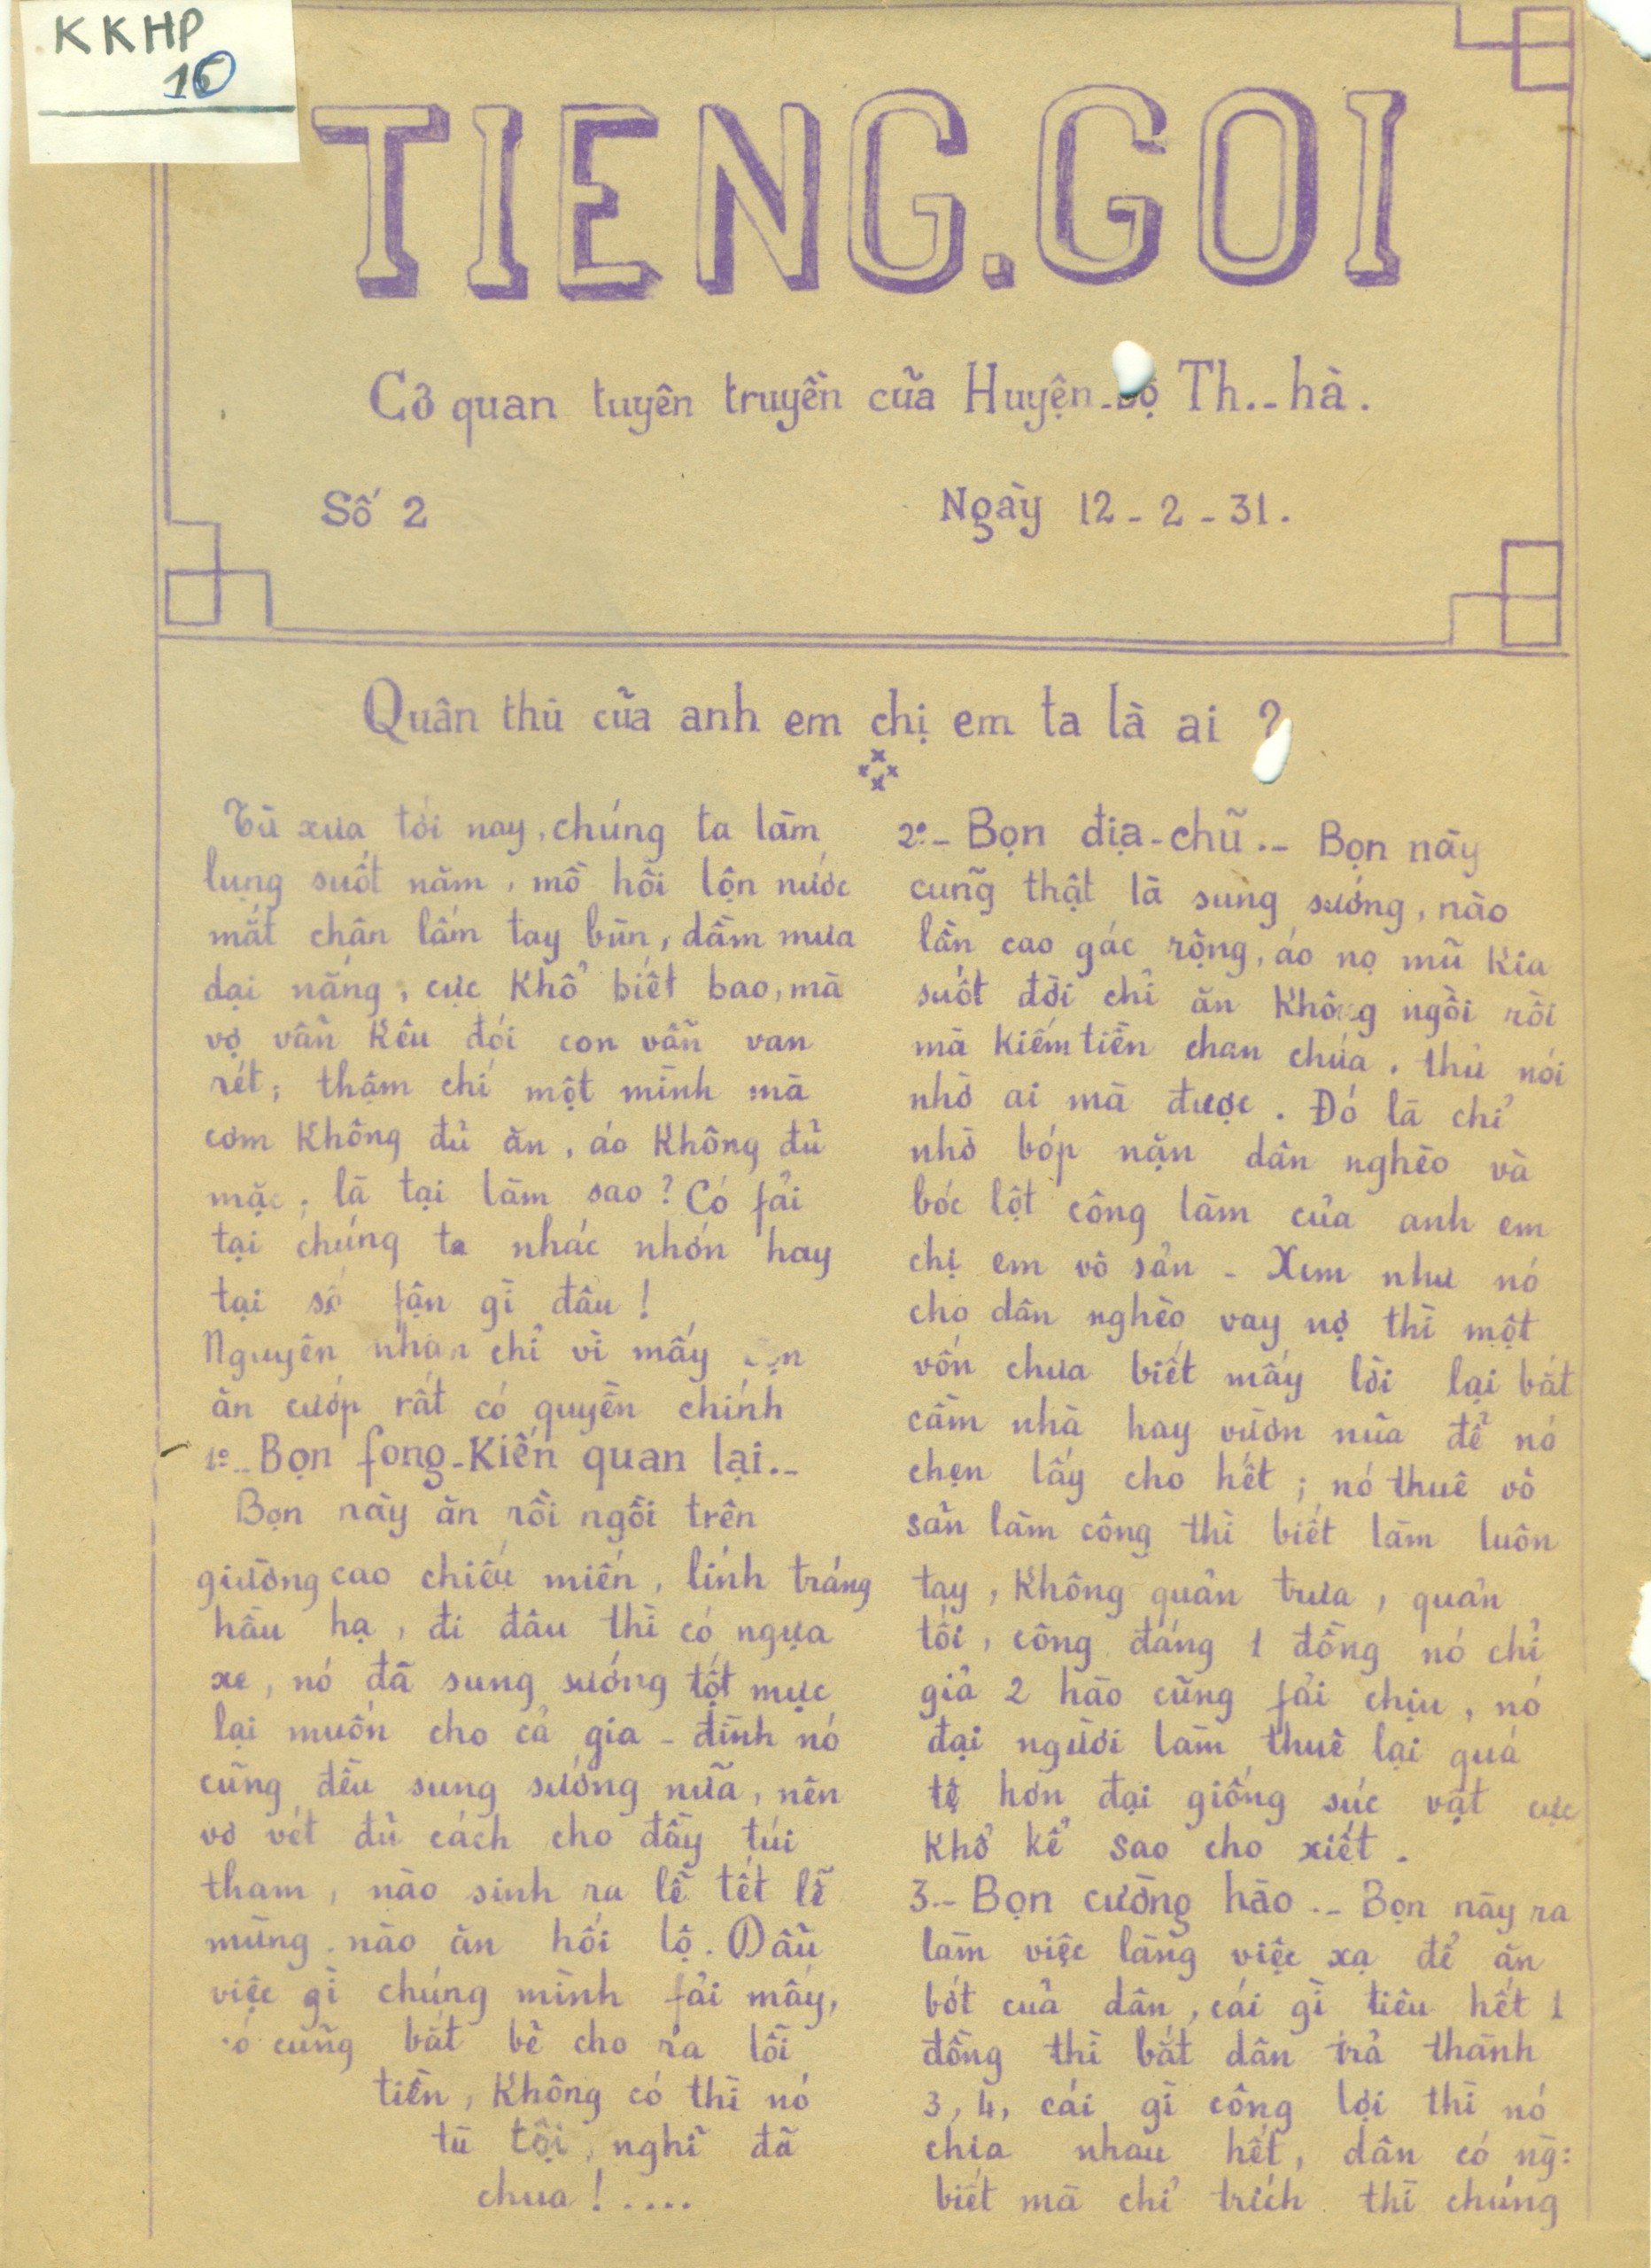 KKHP
10
TIENG.GOI
Cỏ quan tuyên truyền cũa Huyện-bộ Th..-hà.
Số 2
Ngày 12-2-31.
Quân thù cũa anh em chị em ta là ai ?
Từ xưa tới nay, chúng ta làm
lụng suốt năm, mồ hôi lộn nước
mắt chân lấm tay bùn, dầm mưa
dại nắng, cực khổ biết bao, mà
vợ vẫn kêu đói con vẫn van
rét; thậm chí một mình mà
cơm không đủ ăn, áo không đủ
mặc; là tại làm sao? Có fải
tại chúng ta nhác nhớn hay
tại số fận gì đâu!
Nguyên nhân chỉ vì mấy
ăn cướp rất có quyền chính
1º-- Bọn fong-kiến quan lại.--
Bọn này ăn rồi ngồi trên
giường cao chiếu miến, lính tráng
hầu hạ, đi đâu thì có ngựa
xe, nó đã sung sướng tột mực
lại muốn cho cả gia - đình nó
cũng đều sung sướng nữa, nên
vơ vét đủ cách cho đầy túi
tham, nào sinh ra lễ tết lễ
mừng, nào ăn hối lộ. Dầu
việc gì chúng mình fải mấy,
cũng bắt bẻ cho ra lỗi
tiền, không có thì nó
tù tội, nghĩ đã
chưa!....
2º-- Bọn địa-chũ.-- Bọn này
cũng thật là sung sướng, nào
lần cao gác rộng, áo nọ mũ kia
suốt đời chỉ ăn không ngồi rồi
mà kiếm tiền chan chứa. thử nói
nhờ ai mà được. Đó là chỉ
nhờ bóp nặn dân nghèo và
bóc lột công làm của anh em
chị em vô sản - Xem như nó
cho dân nghèo vay nợ thì một
vốn chưa biết mấy lời lại bắt
cầm nhà hay vườn nữa để nó
chẹn lấy cho hết; nó thuê vô
sản làm công thì biết làm luôn
tay, không quản trưa, quản
tối, công đáng 1 đồng nó chỉ
giả 2 hào cũng fải chịu, nó
đại người làm thuê lại quá
tệ hơn đại giống súc vật cực
khổ kể sao cho xiết.
3.-- Bọn cường hào.-- Bọn này ra
làm việc làng việc xạ để ăn
bớt cuả dân, cái gì tiêu hết 1
đồng thì bắt dân trả thành
3, 4, cái gì công lợi thì nó
chia nhau hết, dân có ng:
biết mà chỉ trích thì chúng